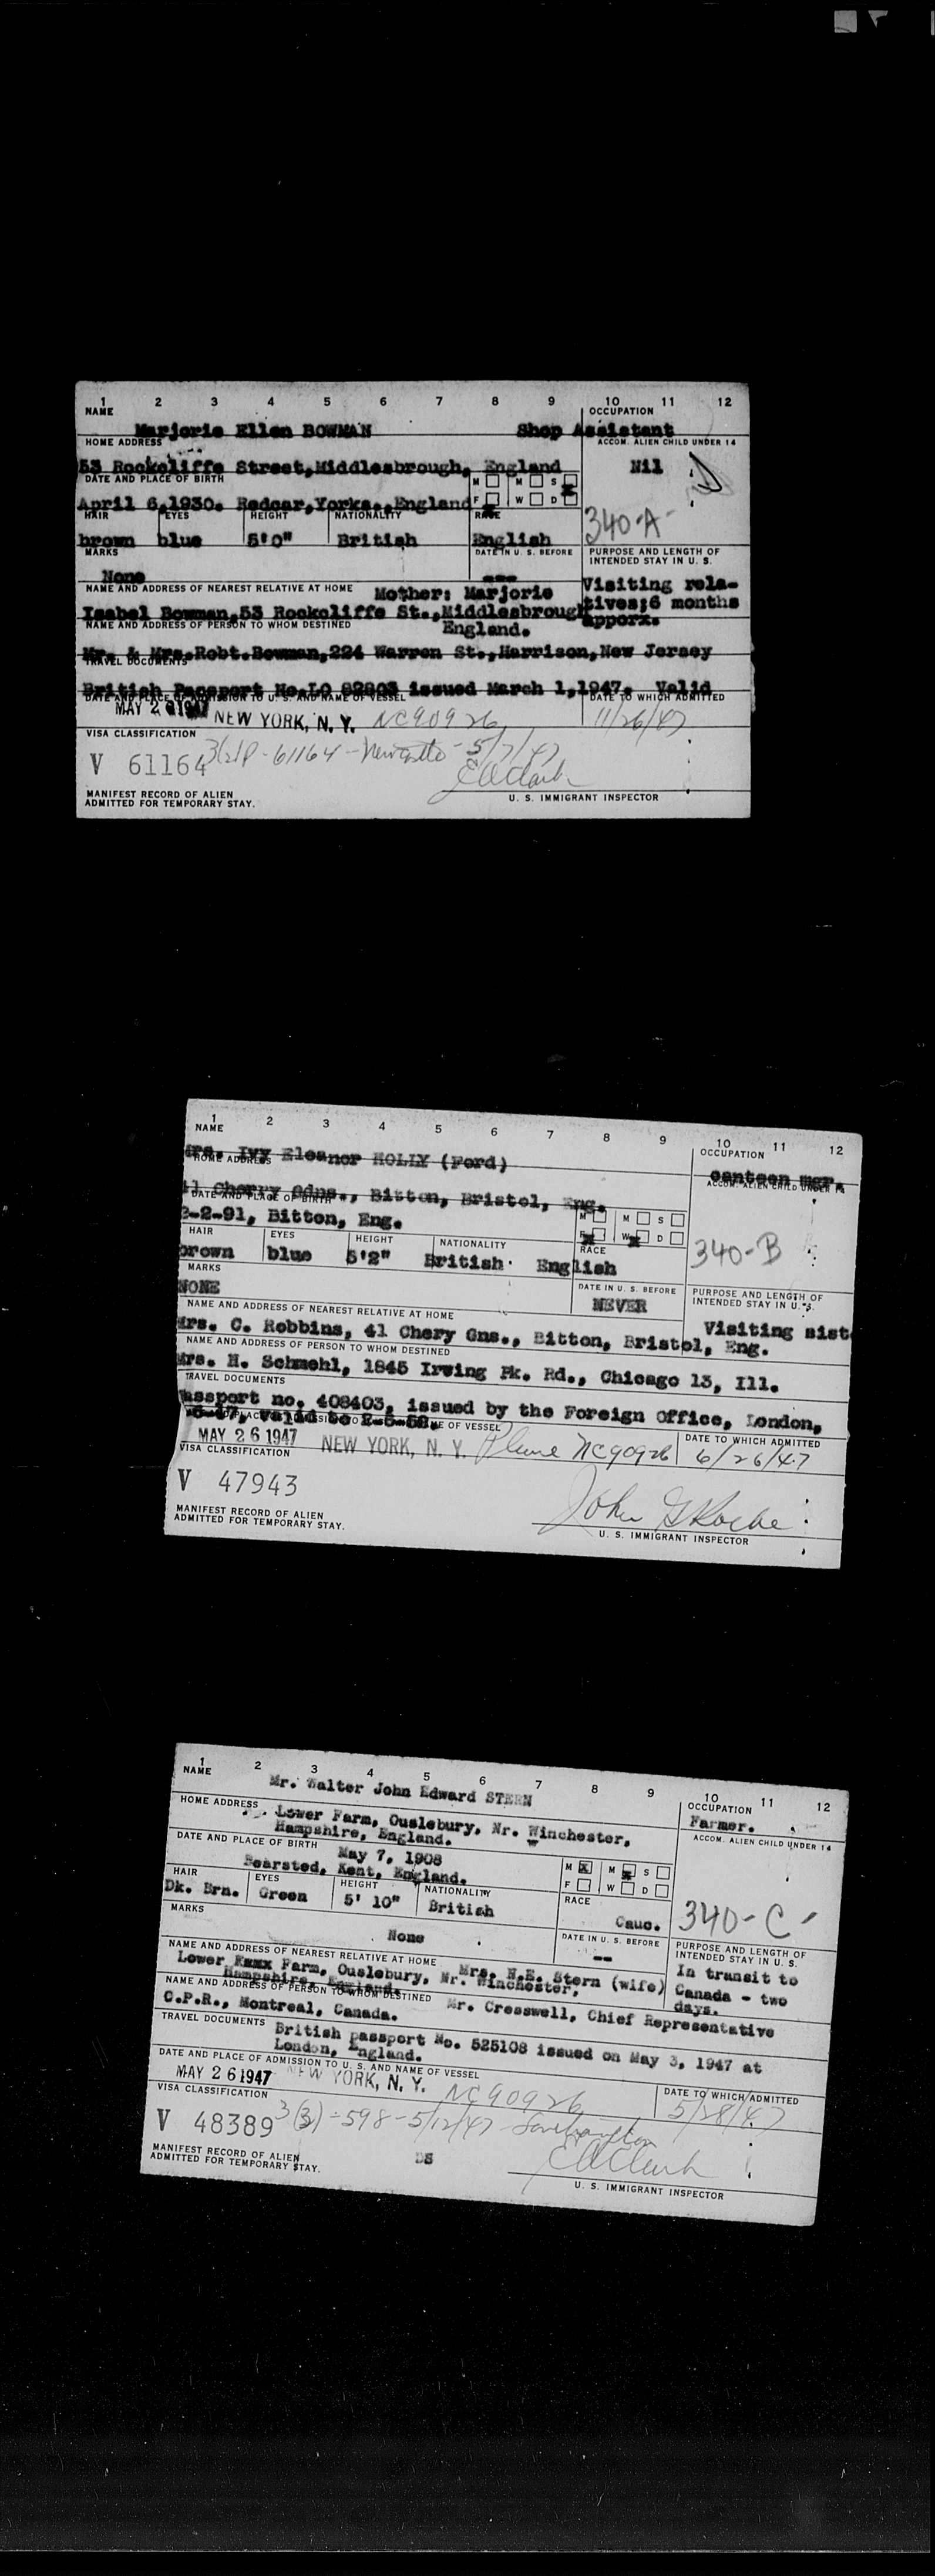 1 2 3 4 5 6 7 8 9 10 11 12
NAME OCCUPATION
Marjorie Ellen BOWMAN Shop Assistant
HOME ADDRESS ACCOM. ALIEN CHILD UNDER 14
53 Rockcliffe Street,Middlesbrough, England Nil
DATE AND PLACE OF BIRTH M M S
April 6,1930. Redcar,Yorks.,England F W D
340-A-
HAIR EYES HEIGHT NATIONALITY RACE
brown blue 5'0" British English
MARKS DATE IN U. S. BEFORE PURPOSE AND LENGTH OF INTENDED STAY IN U. S.
None --- Visiting rela-
NAME AND ADDRESS OF NEAREST RELATIVE AT HOME Mother: Marjorie tives;6 months
Isabel Bowman,53 Rockcliffe St.,Middlesbrough apporx.
NAME AND ADDRESS OF PERSON TO WHOM DESTINED England.
Mr. & Mrs.Robt.Bowman,224 Warren St.,Harrison,New Jersey
TRAVEL DOCUMENTS
British Passport No.LO 82803 issued March 1,1947. Valid
DATE AND PLACE OF ADMISSION TO U. S. AND NAME OF VESSEL DATE TO WHICH ADMITTED
MAY 26 1947 NEW YORK, N. Y. NC90926 11/26/47
VISA CLASSIFICATION
V 61164 61164 - Newcastle - 5/7/47
MANIFEST RECORD OF ALIEN
ADMITTED FOR TEMPORARY STAY. U. S. IMMIGRANT INSPECTOR
1 2 3 4 5 6 7 8 9 10 11 12
NAME OCCUPATION
Mrs. Ivy Eleanor HOLLY (Ford) canteen mgr.
HOME ADDRESS ACCOM. ALIEN CHILD UNDER 14
41 Cherry Gdns., Bitton, Bristol, Eng.
DATE AND PLACE OF BIRTH M M S
2-2-91, Bitton, Eng. F W D
340-B
HAIR EYES HEIGHT NATIONALITY RACE
brown blue 5'2" British English
MARKS DATE IN U. S. BEFORE PURPOSE AND LENGTH OF INTENDED STAY IN U. S.
NONE NEVER
NAME AND ADDRESS OF NEAREST RELATIVE AT HOME Visiting sist
Mrs. C. Robbins, 41 Chery Gns., Bitton, Bristol, Eng.
NAME AND ADDRESS OF PERSON TO WHOM DESTINED
Mrs. H. Schmehl, 1845 Irving Pk. Rd., Chicago 13, Ill.
TRAVEL DOCUMENTS
Passport no. 408403, issued by the Foreign Office, London,
OF VESSEL DATE TO WHICH ADMITTED
MAY 26 1947 NEW YORK, N. Y. Plane NC90926 6/26/47
VISA CLASSIFICATION
V 47943
John G Roche
MANIFEST RECORD OF ALIEN
ADMITTED FOR TEMPORARY STAY. U. S. IMMIGRANT INSPECTOR
1 2 3 4 5 6 7 8 9 10 11 12
NAME Mr. Walter John Edward STERN OCCUPATION
Farmer.
HOME ADDRESS Lower Farm, Ouslebury, Nr. Winchester, ACCOM. ALIEN CHILD UNDER 14
Hampshire, England.
DATE AND PLACE OF BIRTH May 7, 1908 M M S
Bearsted, Kent, England. F W D
340-C
HAIR EYES HEIGHT NATIONALITY RACE
Dk. Brn. Green 5' 10" British Cauc.
MARKS None DATE IN U. S. BEFORE -- PURPOSE AND LENGTH OF INTENDED STAY IN U. S.
NAME AND ADDRESS OF NEAREST RELATIVE AT HOME Mrs. N.E. Stern (wife) In transit to
Lower Farm, Ouslebury, Nr. Winchester, Canada - two
Hampshire, England. days.
NAME AND ADDRESS OF PERSON TO WHOM DESTINED Mr. Cresswell, Chief Representative
C.P.R., Montreal, Canada.
TRAVEL DOCUMENTS British passport No. 525108 issued on May 3, 1947 at
London, England.
DATE AND PLACE OF ADMISSION TO U. S. AND NAME OF VESSEL DATE TO WHICH ADMITTED
MAY 26 1947 NEW YORK, N. Y. NC90926 5/28/47
VISA CLASSIFICATION
V 48389 3(3)-598-5/12/47 Southampton
MANIFEST RECORD OF ALIEN DS
ADMITTED FOR TEMPORARY STAY. U. S. IMMIGRANT INSPECTOR